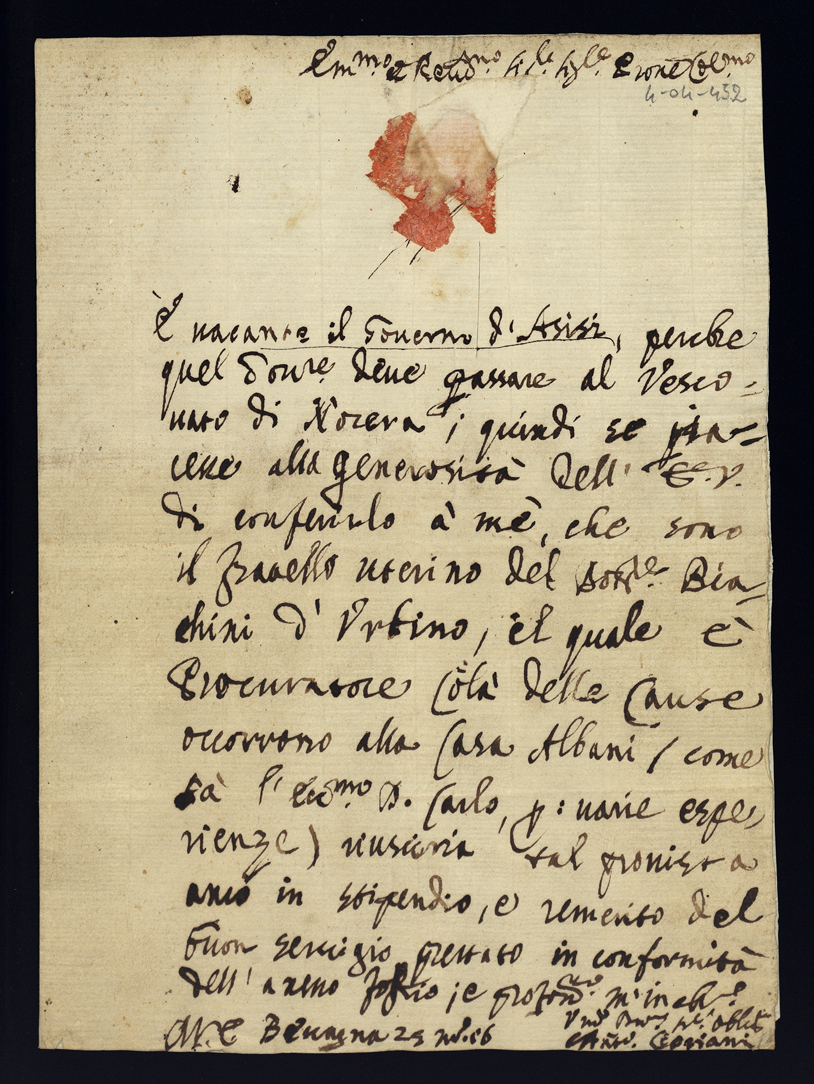 Em.mo et Re
4-04-452
È vacante il Governo d'Asisi, perche
quel Gov.re deve passare al Vesco-
vato di Nocera; quindi se pia-
cesse alla generosità dell' E.V.
di conferirlo à mè, che sono
il fratello uterino del Dott.re Bia-
chini d'Urbino, il quale è
Procuratore Colà delle Cause
occorrono alla Casa Albani / come
sà l' Ecc.mo D. Carlo, p: varie espe-
rienze) riusciria tal provista
anco in stipendio, e remerito del
buon servigio prestato in conformità
dell' anesso foglio; e m'inch.o
Bevagna 25
Cipriani